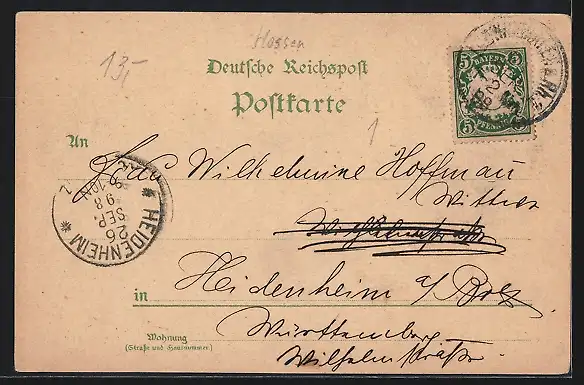 13,-
Hessen
Deutsche Reichspost
Postkarte
BAYERN
5
5
PFENNIG
An
Frau Wilhelmine Hoffmann
Wittwe
Wilhelmstraße
HEIDENHEIM
26
SEP.
98
in Heidenheim a/Brz
Württemberg
Wohnung
(Straße und Hausnummer)
Wilhelmstraße
1